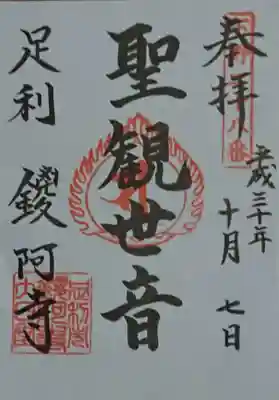 奉拝
平成三十年
十月七日
聖観世音
足利 鑁阿寺